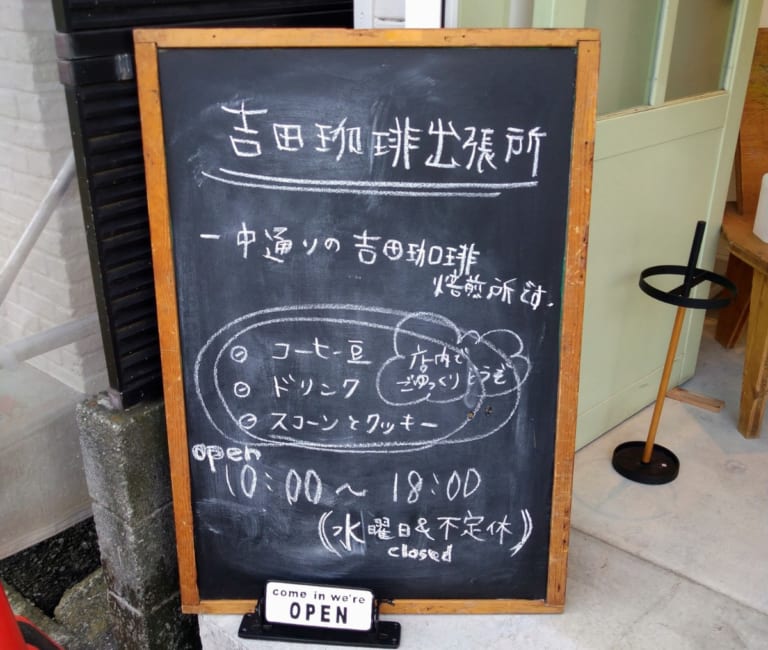 吉田珈琲出張所
一中通りの吉田珈琲
焙煎所です.
コーヒー豆
ドリンク
スコーンとクッキー
店内で
ごゆっくりどうぞ
open
10:00〜18:00
(水曜日&不定休)
closed
come in we're
OPEN